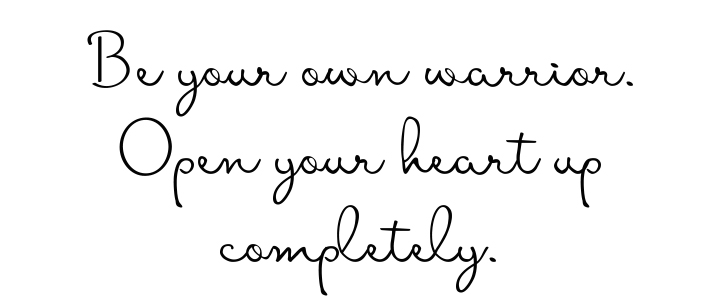 Be your own warrior.
Open your heart up
completely.